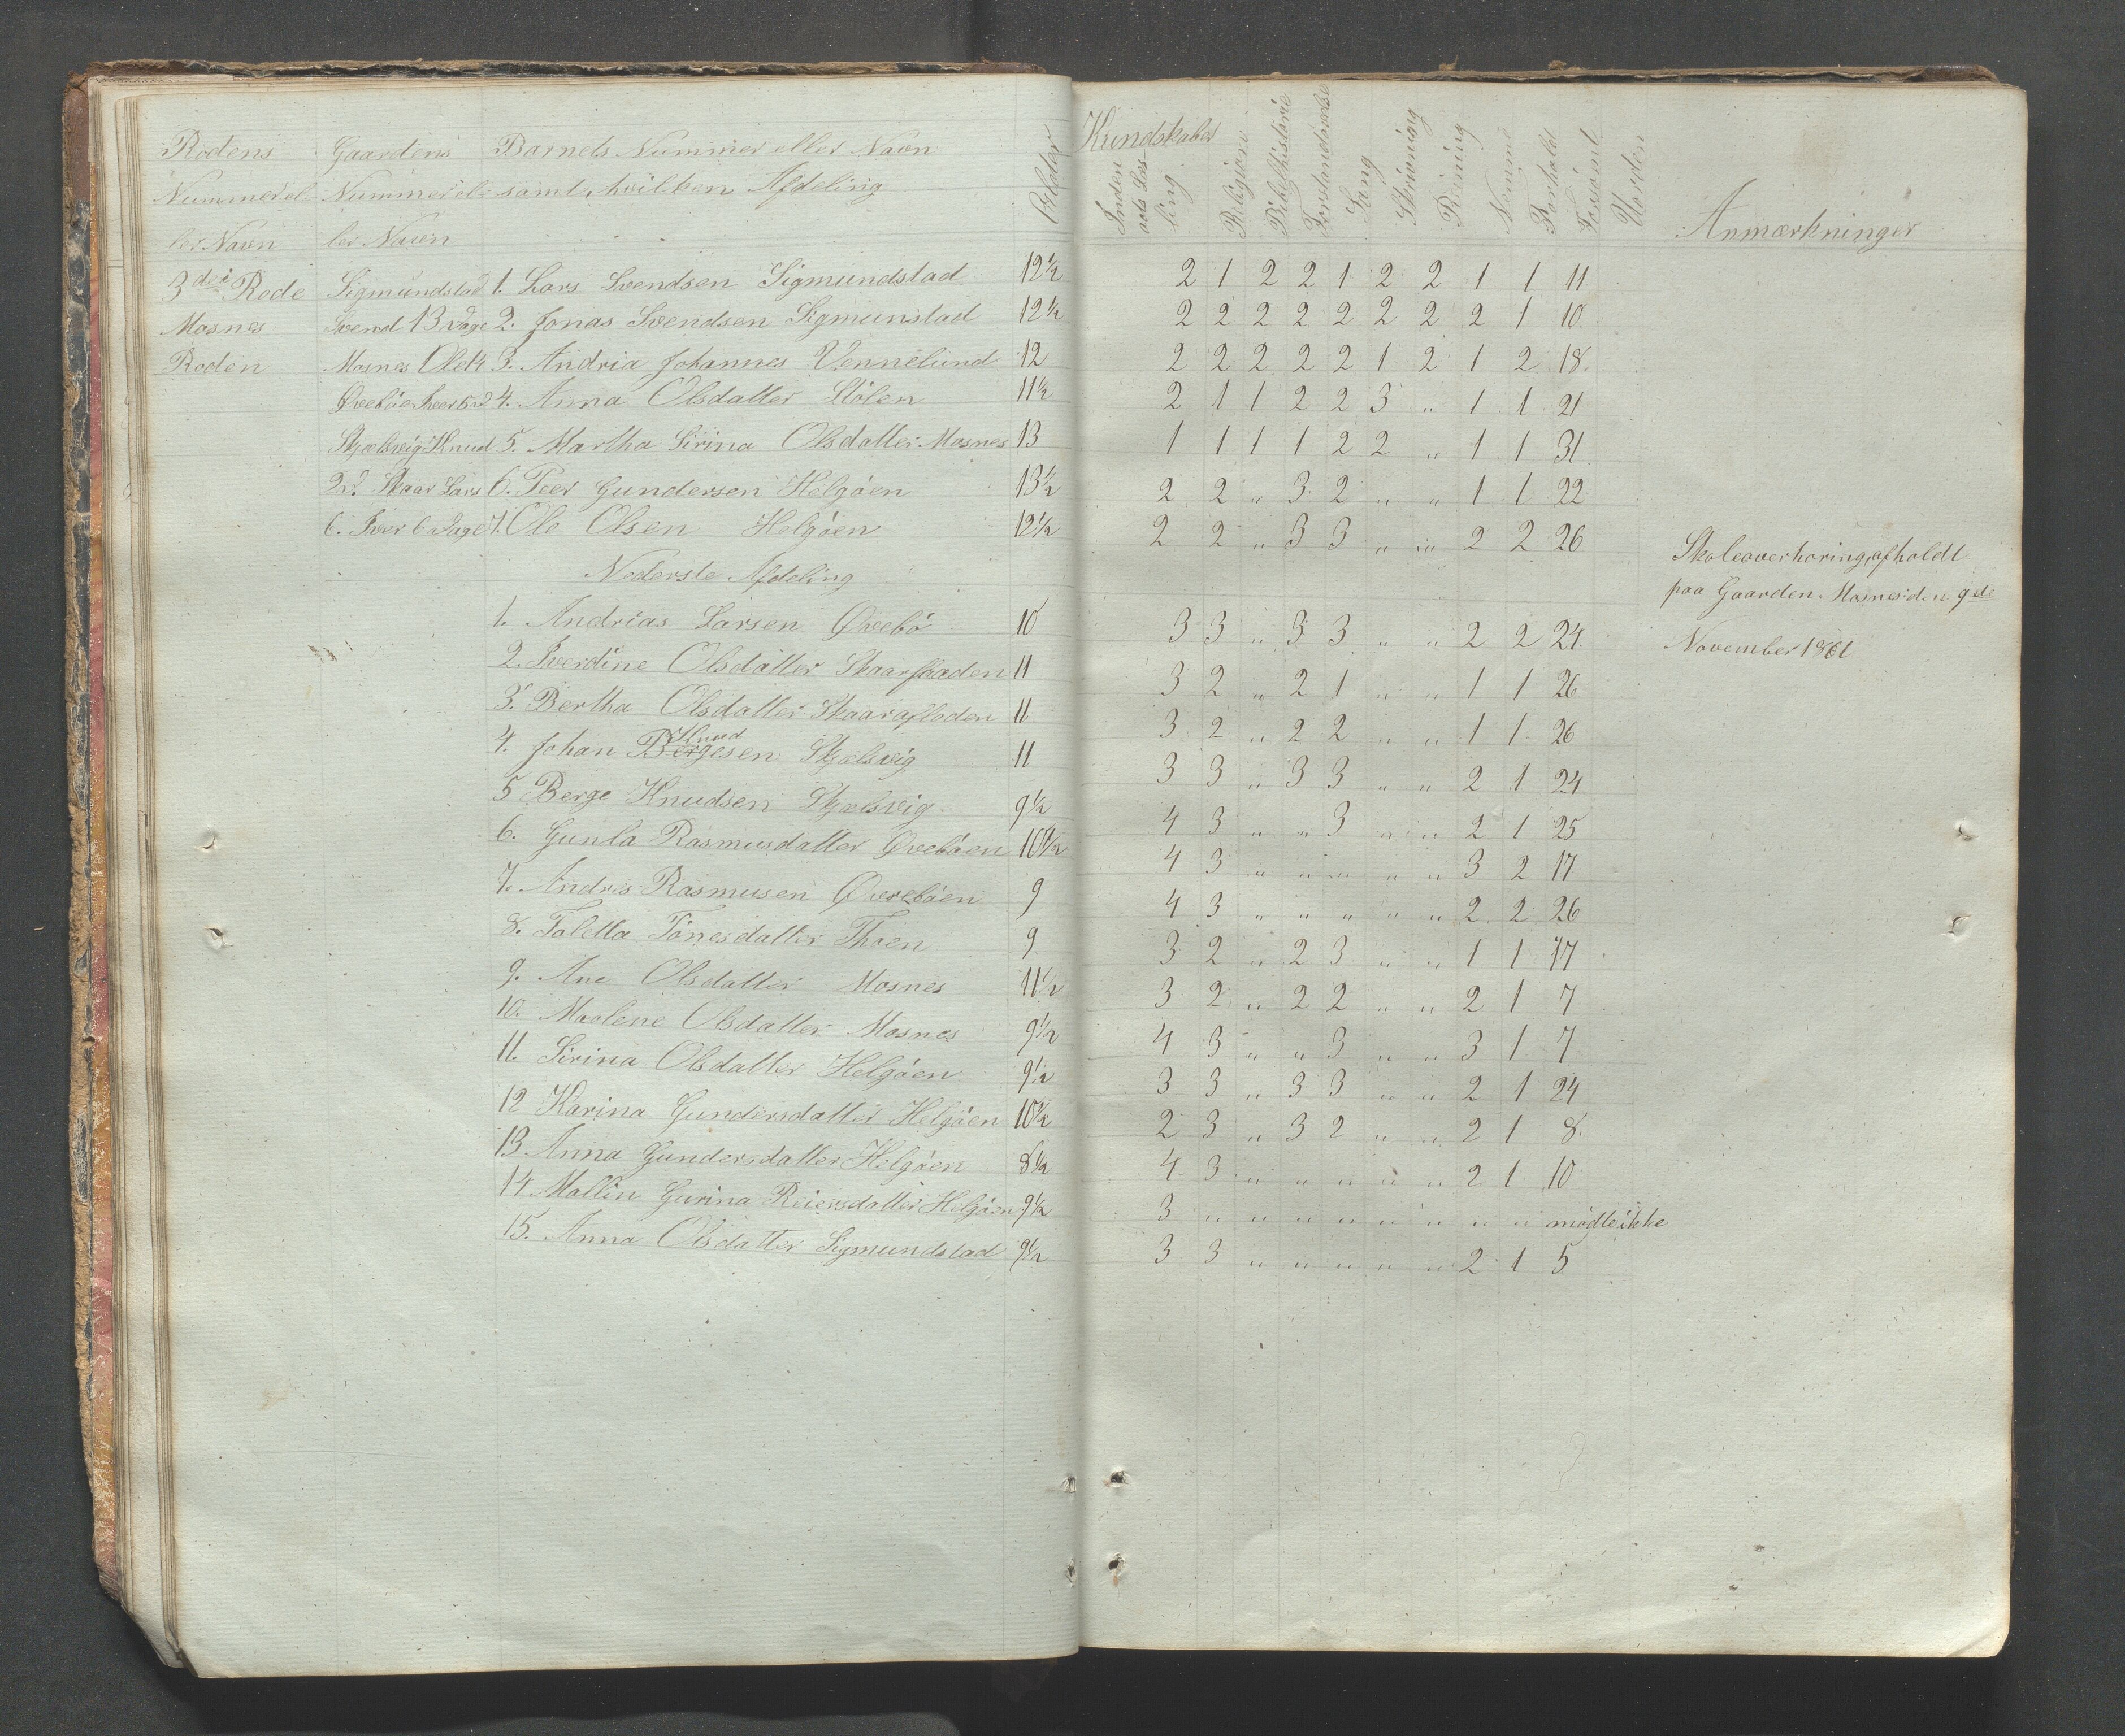 Rodens Gaardens Barnets Nummer eller Navn Alder
Nummer el- Nummer el- samt hvilken Afdeling
ler Navn ler Navn
Kundskaber
Inden
ads Læs
ning Religion Bibelhistorie Forstandsøvelse Sang Skrivning Regning Nemme Forhold Forsømt Uorden Anmærkninger
3die Rode Sigmundstad 1. Lars Svendsen Sigmundstad 12½ 2 1 2 2 1 2 2 1 1 11
Mosnes Svend 13 Dage 2. Jonas Svendsen Sigmunstad 12½ 2 2 2 2 2 2 2 2 1 10
Roden Mosnes Ole 3. Andria Johannes Vennelund 12 2 2 2 2 2 1 2 1 2 18
Øvebøe Iver 5 4. Anna Olsdatter Stölen 11½ 2 1 1 2 2 3 " 1 1 21
Skjelsvig Knud 5. Martha Sirina Olsdatter Mosnes 13 1 1 1 1 2 2 " 1 1 31
2D. Skaar Lars 6. Peer Gundersen Helgöen 13½ 2 2 " 3 2 " " 1 1 22
6. Iver 6 Dage 7. Ole Olsen Helgöen 12½ 2 2 " 3 3 " " 2 2 26
Skoleoverhøring afholdt
paa Gaarden Mosnes den 9de
November 1861
Nederste Afdeling
1. Andrias Larsen Øvebö 10 3 3 " 3 3 " " 2 2 24
2. Iverdine Olsdatter Skaarflaaden 11 3 2 " 2 1 " " 1 1 26
3. Bertha Olsdatter Skaarafloden 11 3 2 " 2 2 " " 1 1 26
Knud
4. Johan Bergesen Skjelsvig 11 3 3 " 3 3 " " 2 1 24
5 Berge Knudsen Skjelsvig 9½ 4 3 " " 3 " " 2 1 25
6. Gunla Rasmusdatter Øvebøen 10½ 4 3 " " " " " 3 2 17
7. Andreas Rasmusen Øverebøen 9 4 3 " " " " " 2 2 26
8. Taletta Tönesdatter Thoen 9 3 2 " 2 3 " " 1 1 17
9. Ane Olsdatter Mosnes 11½ 3 2 " 2 2 " " 2 1 7
10. Maolene Olsdatter Mosnes 9½ 4 3 " " 3 " " 3 1 7
11. Sirina Olsdatter Helgöen 9½ 3 3 " 3 3 " " 2 1 24
12 Karina Gundersdatter Helgöen 10½ 2 3 " 3 2 " " 2 1 8
13 Anna Gundersdatter Helgöen 8½ 4 3 " " " " " 2 1 10
14 Mallin Gurina Reiersdatter Helgöen 9½ 3 " " " " " " " " mödte ikke
15. Anna Olsdatter Sigmundstad 9½ 3 3 " " " " " 2 1 5